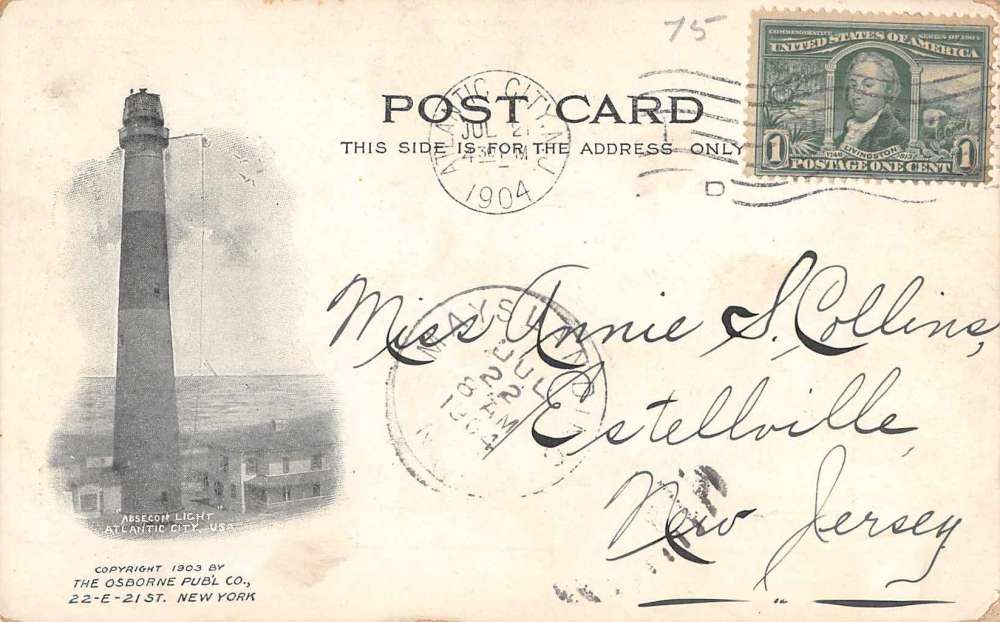 75
COMMEMORATIVE SERIES OF 1904
UNITED STATES OF AMERICA
1 1
LIVINGSTON
POSTAGE ONE CENT
ATLANTIC CITY, N.J.
JUL 21
430 PM
1904
D
POST CARD
THIS SIDE IS FOR THE ADDRESS ONLY
Miss Annie S. Collins,
Estellville,
New Jersey
MAYS LANDING
JUL
22
8 AM
1904
N.J.
ABSECON LIGHT
ATLANTIC CITY, USA
COPYRIGHT 1903 BY
THE OSBORNE PUB'L CO.,
22-E-21 ST. NEW YORK